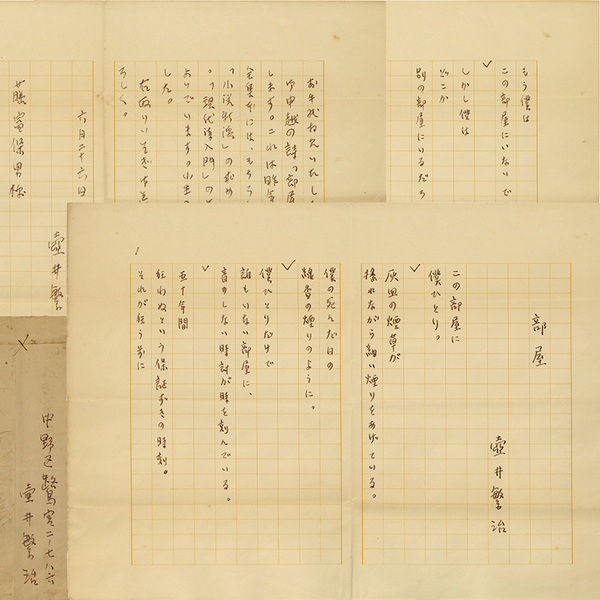 部屋
壺井繁治
この部屋に
僕ひとり。
灰皿の煙草が
揺れながら細い煙りをあげている。
僕の死んだ日の
線香の煙りのように。
僕ひとりだけで
誰もいない部屋に、
音のしない時計が時を刻んでいる。
五十年間
狂わぬという保証ずきの時刻。
それが狂う前に
1
もう僕は
この部屋にいないで
しかし僕は
どこか
別の部屋にいるだろ
お手紙拝見いたし
御申越の詩「部屋
します。これは昨年
全集本には、もちろ
「小説新潮」の
「現代詩入門」の
よっています。
した。
右取りいそぎ
ろしく。
六月二十六日
壺井繁
富保男様
中野区鷺宮二ノ七八六
壺井繁治